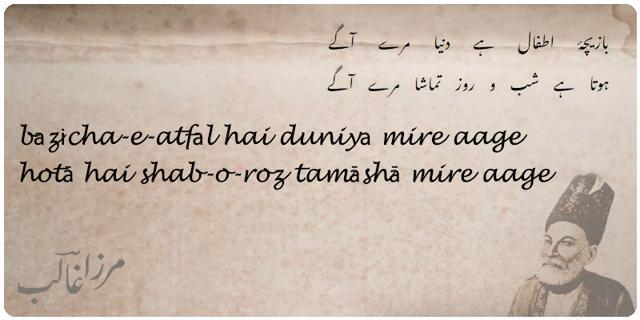 بازیچۂ اطفال ہے دنیا مرے آگے
ہوتا ہے شب و روز تماشا مرے آگے
bazicha-e-atfal hai duniya mire aage
hotā hai shab-o-roz tamāshā mire aage
مرزا غالب